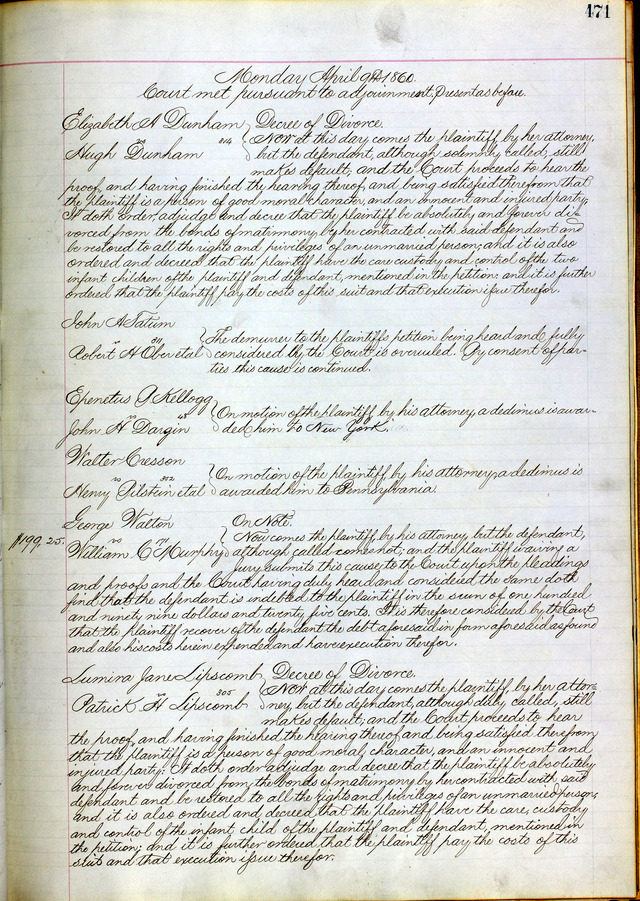 471
Monday April 9th 1860.
Court met pursuant to adjournment, present as before.
Elizabeth A Dunham Decree of Divorce.
vs 814 Now at this day comes the plaintiff, by her attorney,
Hugh Dunham but the defendant, although solemnly called, still
makes default, and the Court proceeds to hear the
proof, and having finished the hearing thereof, and being satisfied therefrom that
the plaintiff is a person of good moral character, and an innocent and injured party;
It doth order, adjudge and decree that the plaintiff be absolutely and forever di-
vorced from the bonds of matrimony by her contracted with said defendant and
be restored to all the rights and privileges of an unmarried person; and it is also
ordered and decreed that the plaintiff have the care custody and control of the two
infant children of the plaintiff and defendant, mentioned in the petition: and it is further
ordered that the plaintiff pay the costs of this suit and that execution issue therefor.
John A Tatum
vs 311 The demurrer to the plaintiffs petition being heard and fully
Robert H Ober et al considered by the Court is overruled. By consent of par-
ties this cause is continued.
Epenetus P Kellogg
vs On motion of the plaintiff by his attorney, a dedimus is awar-
John H Dargin ded him to New York.
Walter Cresson
vs 302 On motion of the plaintiff by his attorney, a dedimus is
Henry Pilskin et al awarded him to Pennsylvania.
George Walton On Note.
vs Now comes the plaintiff, by his attorney, but the defendant,
$199,25. William C Murphy although called comes not; and the plaintiff waiving a
jury submits this cause to the Court upon the pleadings
and proofs and the Court having duly heard and considered the same doth
find that the defendant is indebted to the plaintiff in the sum of one hundred
and ninety nine dollars and twenty five cents. It is therefore considered by the Court
that the plaintiff recover of the defendant the debt aforesaid in form aforesaid as found
and also his costs herein expended and have execution therefor.
Lumira Jane Lipscomb Decree of Divorce.
vs 305 Now at this day comes the plaintiff, by her attor-
Patrick H Lipscomb ney, but the defendant, although duly, called, still
makes default, and the Court proceeds to hear
the proof, and having finished the hearing thereof and being satisfied therefrom
that the plaintiff is a person of good moral, character, and an innocent and
injured party: It doth order adjudge and decree that the plaintiff be absolutely
and forever divorced from the bonds of matrimony by her contracted with said
defendant and be restored to all the rights and privileges of an unmarried person;
and it is also ordered and decreed that the plaintiff have the care, custody
and control of the infant child of the plaintiff and defendant, mentioned in
the petition; and it is further ordered that the plaintiff pay the costs of this
suit and that execution issue therefor.